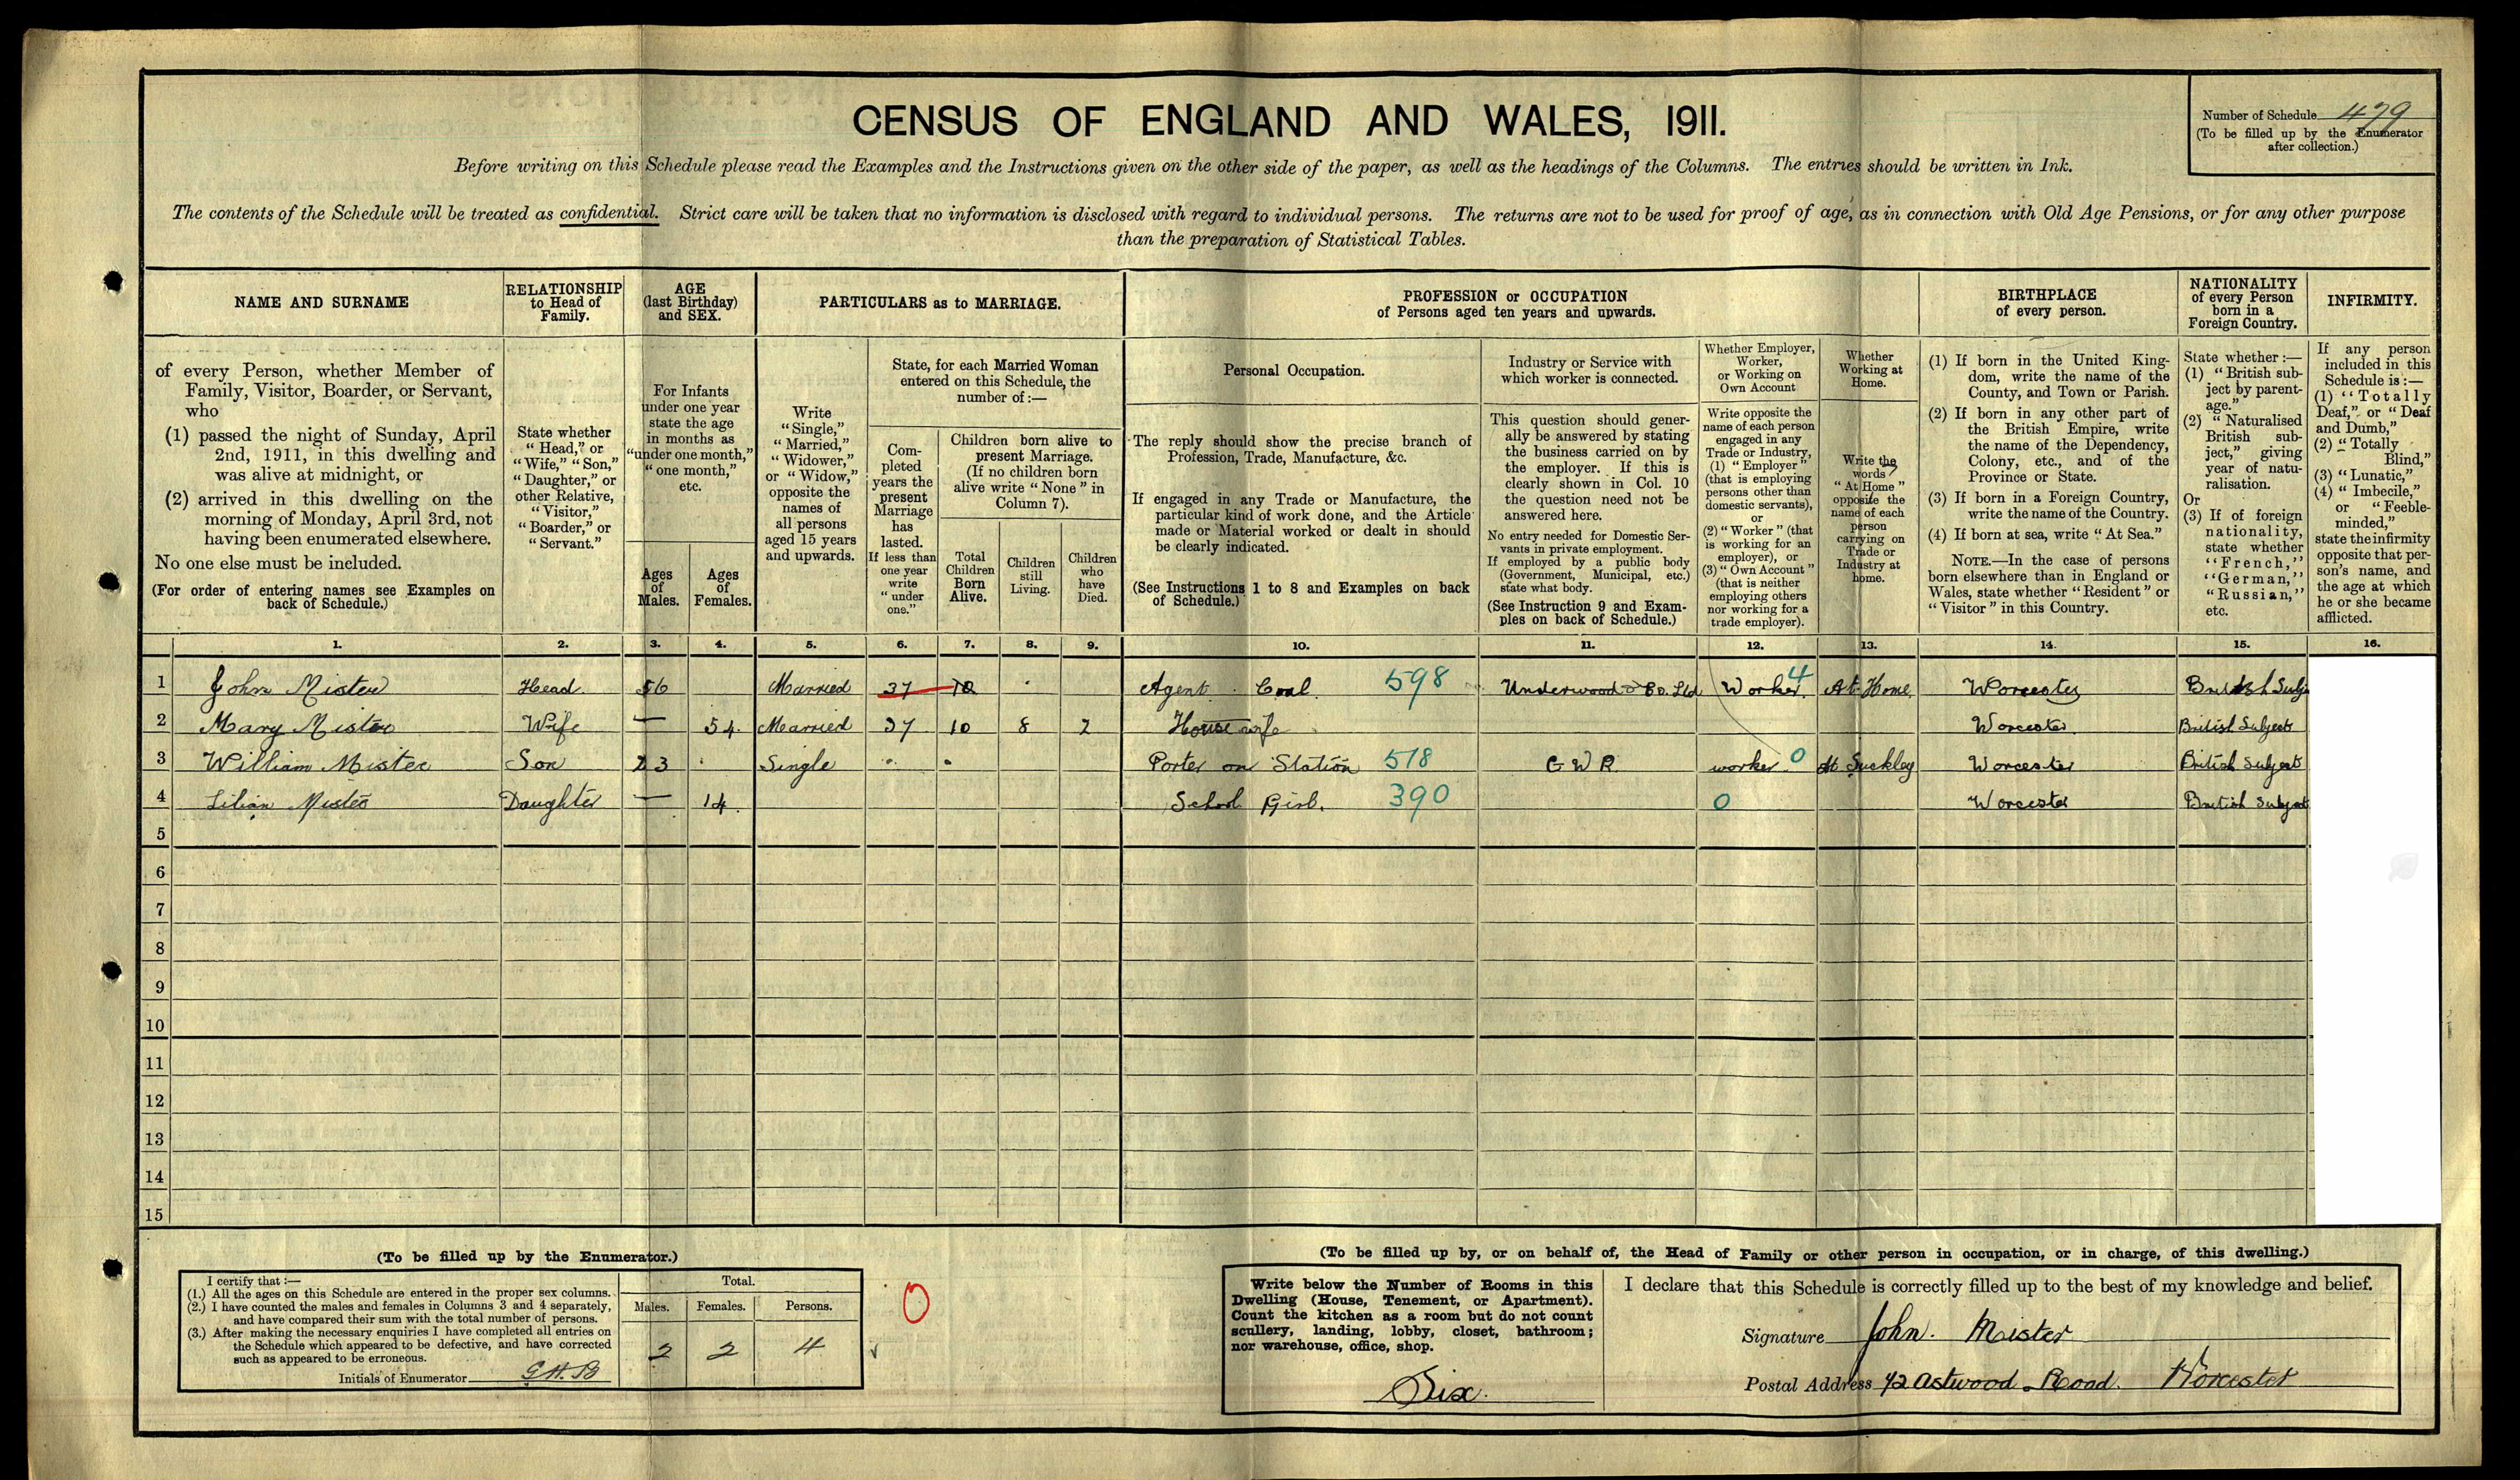 CENSUS OF ENGLAND AND WALES, 1911.
Number of Schedule 479
(To be filled up by the Enumerator
after collection.)
Before writing on this Schedule please read the Examples and the Instructions given on the other side of the paper, as well as the headings of the Columns. The entries should be written in Ink.
The contents of the Schedule will be treated as confidential. Strict care will be taken that no information is disclosed with regard to individual persons. The returns are not to be used for proof of age, as in connection with Old Age Pensions, or for any other purpose
than the preparation of Statistical Tables.
NAME AND SURNAME
RELATIONSHIP
to Head of
Family.
AGE
(last Birthday)
and SEX.
PARTICULARS as to MARRIAGE.
PROFESSION or OCCUPATION
of Persons aged ten years and upwards.
BIRTHPLACE
of every person.
NATIONALITY
of every Person
born in a
Foreign Country.
INFIRMITY.
of every Person, whether Member of
Family, Visitor, Boarder, or Servant,
who
(1) passed the night of Sunday, April
2nd, 1911, in this dwelling and
was alive at midnight, or
(2) arrived in this dwelling on the
morning of Monday, April 3rd, not
having been enumerated elsewhere.
No one else must be included.
(For order of entering names see Examples on
back of Schedule.)
State whether
"Head," or
"Wife," "Son,"
"Daughter," or
other Relative,
"Visitor,"
"Boarder," or
"Servant."
For Infants
under one year
state the age
in months as
"under one month,"
"one month,"
etc.
Ages
of
Males.
Ages
of
Females.
Write
"Single,"
"Married,"
"Widower,"
or "Widow,"
opposite the
names of
all persons
aged 15 years
and upwards.
State, for each Married Woman
entered on this Schedule, the
number of :—
Com-
pleted
years the
present
Marriage
has
lasted.
If less than
one year
write
"under
one."
Children born alive to
present Marriage.
(If no children born
alive write "None" in
Column 7).
Total
Children
Born
Alive.
Children
still
Living.
Children
who
have
Died.
Personal Occupation.
The reply should show the precise branch of
Profession, Trade, Manufacture, &c.
If engaged in any Trade or Manufacture, the
particular kind of work done, and the Article
made or Material worked or dealt in should
be clearly indicated.
(See Instructions 1 to 8 and Examples on back
of Schedule.)
Industry or Service with
which worker is connected.
This question should gener-
ally be answered by stating
the business carried on by
the employer. If this is
clearly shown in Col. 10
the question need not be
answered here.
No entry needed for Domestic Ser-
vants in private employment.
If employed by a public body
(Government, Municipal, etc.)
state what body.
(See Instruction 9 and Exam-
ples on back of Schedule.)
Whether Employer,
Worker,
or Working on
Own Account
Write opposite the
name of each person
engaged in any
Trade or Industry,
(1) "Employer"
(that is employing
persons other than
domestic servants),
or
(2) "Worker" (that
is working for an
employer), or
(3) "Own Account"
(that is neither
employing others
nor working for a
trade employer).
Whether
Working at
Home.
Write the
words
"At Home"
opposite the
name of each
person
carrying on
Trade or
Industry at
home.
(1) If born in the United King-
dom, write the name of the
County, and Town or Parish.
(2) If born in any other part of
the British Empire, write
the name of the Dependency,
Colony, etc., and of the
Province or State.
(3) If born in a Foreign Country,
write the name of the Country.
(4) If born at sea, write "At Sea."
NOTE.—In the case of persons
born elsewhere than in England or
Wales, state whether "Resident" or
"Visitor" in this Country.
State whether :—
(1) "British sub-
ject by parent-
age."
(2) "Naturalised
British sub-
ject," giving
year of natu-
ralisation.
Or
(3) If of foreign
nationality,
state whether
"French,"
"German,"
"Russian,"
etc.
If any person
included in this
Schedule is :—
(1) "Totally
Deaf," or "Deaf
and Dumb,"
(2) "Totally
Blind,"
(3) "Lunatic,"
(4) "Imbecile,"
or "Feeble-
minded,"
state the infirmity
opposite that per-
son's name, and
the age at which
he or she became
afflicted.
1. 2. 3. 4. 5. 6. 7. 8. 9. 10. 11. 12. 13. 14. 15. 16.
1 John Mister Head 56 Married 37 10 Agent Coal 598 Underwood & Co. Ltd Worker 4 At Home Worcester British Subj
2 Mary Mister Wife — 54 Married 37 10 8 2 House wife Worcester British Subject
3 William Mister Son 23 Single Porter on Station 518 G W R worker 0 At Suckley Worcester British Subject
4 Lilian Mister Daughter — 14 School Girl. 390 0 Worcester British Subject
5
6
7
8
9
10
11
12
13
14
15
(To be filled up by the Enumerator.)
I certify that :—
(1.) All the ages on this Schedule are entered in the proper sex columns.
(2.) I have counted the males and females in Columns 3 and 4 separately,
and have compared their sum with the total number of persons.
(3.) After making the necessary enquiries I have completed all entries on
the Schedule which appeared to be defective, and have corrected
such as appeared to be erroneous.
Initials of Enumerator G.H.B
Total.
Males. Females. Persons.
2 2 4
0
(To be filled up by, or on behalf of, the Head of Family or other person in occupation, or in charge, of this dwelling.)
Write below the Number of Rooms in this
Dwelling (House, Tenement, or Apartment).
Count the kitchen as a room but do not count
scullery, landing, lobby, closet, bathroom;
nor warehouse, office, shop.
Six.
I declare that this Schedule is correctly filled up to the best of my knowledge and belief.
Signature John. Mister
Postal Address 42 Astwood Road. Worcester